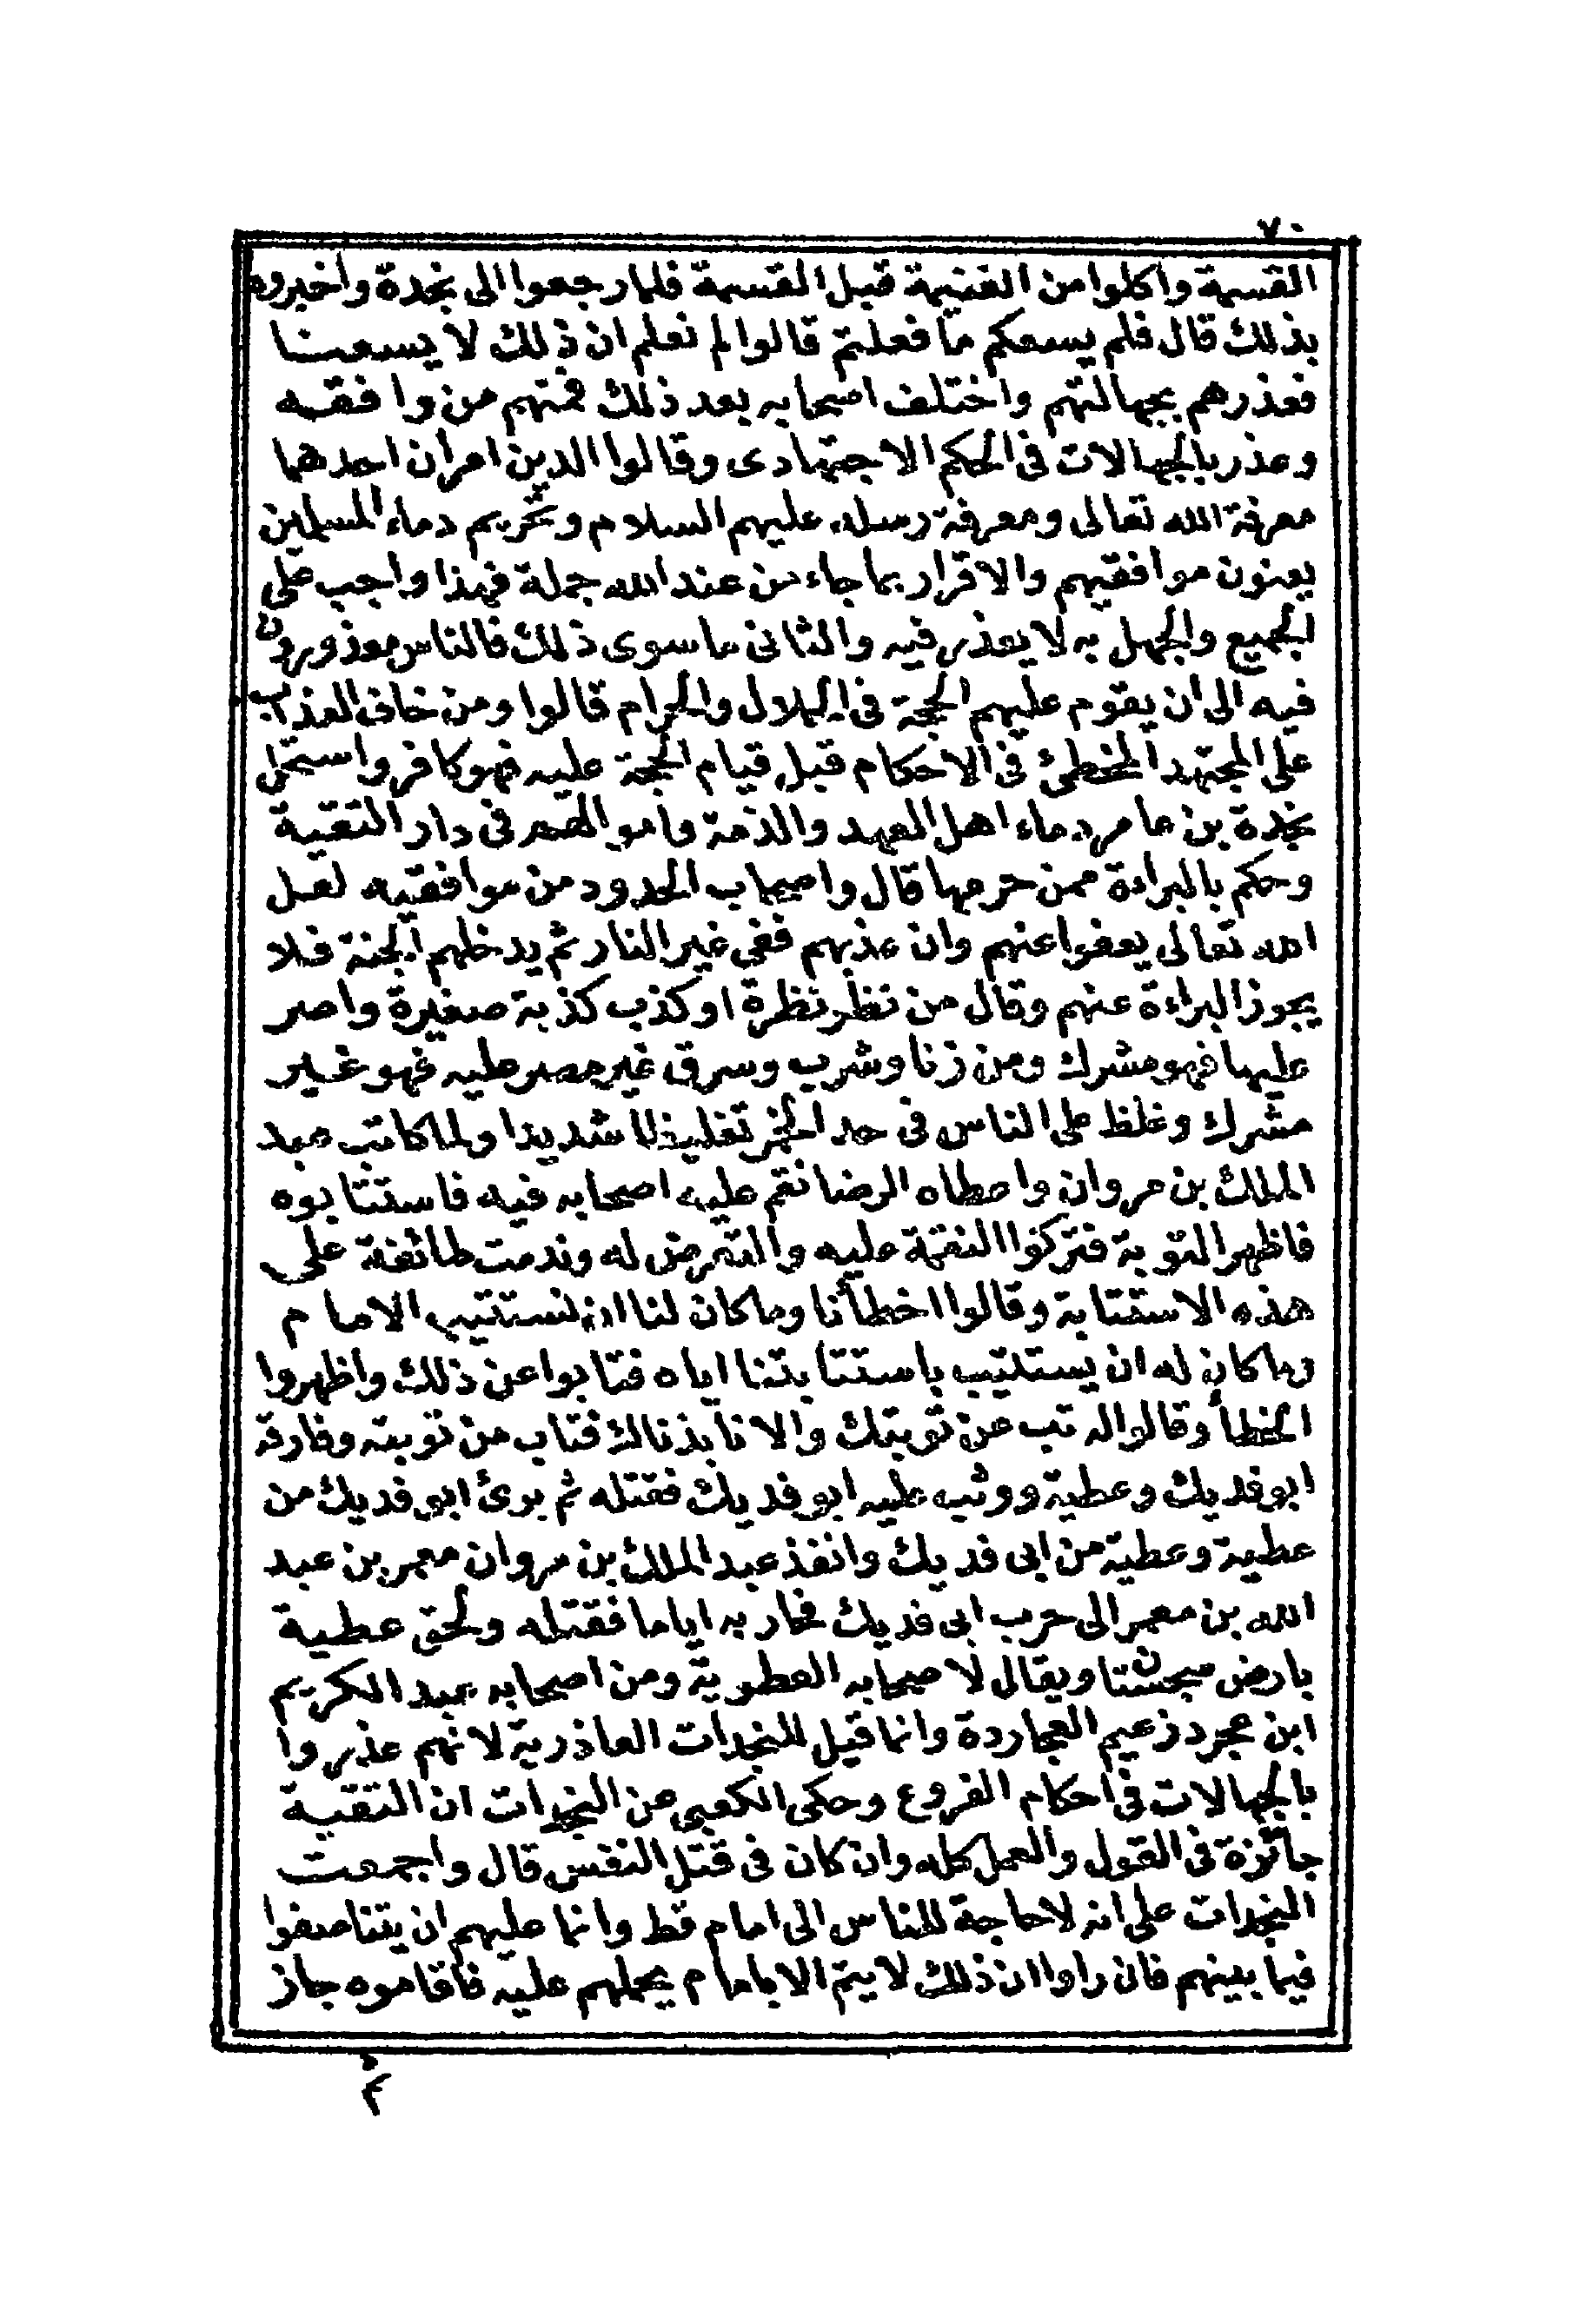 ٧٠
القسمة واكلوا من الغنيمة قبل القسمة فلما رجعوا الى نجدة واخبروه
بذلك قال فلم يسعكم ما فعلتم قالوا لم نعلم ان ذلك لا يسعنا
فعذرهم بجهالتهم واختلف اصحابه بعد ذلك فمنهم من وافقه
وعذر بالجهالات فى الحكم الاجتهادى وقالوا الدين امران احدهما
معرفة الله تعالى ومعرفة رسله عليهم السلام وتحريم دماء المسلمين
يعنون موافقيهم والاقرار بما جاء من عند الله جملة فهذا واجب على
الجميع والجهل به لا يعذر فيه والثانى ما سوى ذلك فالناس معذورون
فيه الى ان يقوم عليهم الحجة فى الحلال والحرام قالوا ومن خاف العذاب
على المجتهد المخطئ فى الاحكام قبل قيام الحجة عليه فهو كافر واستحل
نجدة بن عامر دماء اهل العهد والذمة واموالهم فى دار التقية
وحكم بالبراءة ممن حرمها قال واصحاب الحدود من موافقيه لعل
الله تعالى يعفوا عنهم وان عذبهم ففى غير النار ثم يدخلهم الجنة فلا
يجوز البراءة عنهم وقال من نظر نظرة او كذب كذبة صغيرة واصر
عليها فهو مشرك ومن زنا وشرب وسرق غير مصر عليه فهو غير
مشرك وغلظ على الناس فى حد الخمر تغليظا شديدا ولما كاتب عبد
الملك بن مروان واعطاه الرضا نقم عليه اصحابه فيه فاستتابوه
فاظهر التوبة فتركوا النقمة عليه والتعرض له وندمت طائفة على
هذه الاستتابة وقالوا اخطأنا وما كان لنا ان نستتيب الامام
وما كان له ان يستتيب باستتابتنا اياه فتابوا عن ذلك واظهروا
الخطأ وقالوا له تب عن توبتك والا نابذناك فتاب من توبته وفارقه
ابو فديك وعطية ووثب عليه ابو فديك فقتله ثم برئ ابو فديك من
عطية وعطية من ابى فديك وانفذ عبد الملك بن مروان معمر بن عبد
الله بن معمر الى حرب ابى فديك فحاربه اياما فقتله ولحق عطية
بارض سجستان ويقال لاصحابه العطوية ومن اصحابه عبد الكريم
ابن عجرد زعيم العجاردة وانما قيل للنجدات العاذرية لانهم عذروا
بالجهالات فى احكام الفروع وحكى الكعبى عن النجدات ان التقية
جائزة فى القول والعمل كله وان كان فى قتل النفس قال واجمعت
النجدات على انه لا حاجة للناس الى امام قط وانما عليهم ان يتناصفوا
فيما بينهم فان راوا ان ذلك لا يتم الا بامام يحملهم عليه فاقاموه جاز